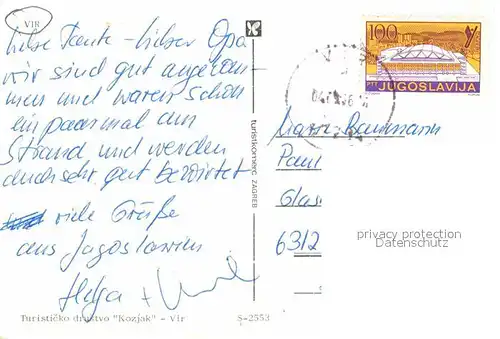 VIR
Liebe Tante – lieber Opa
wir sind gut angekom-
men und waren schon
ein paarmal am
Strand und werden
auch sehr gut bewirtet
viele Grüße
aus Jugoslawien
Helga +
Turističko društvo "Kozjak" – Vir
S-2553
turistkomerc ZAGREB
100
PTT JUGOSLAVIJA
Baumann
Paul
Glas
6312
privacy protection
Datenschutz